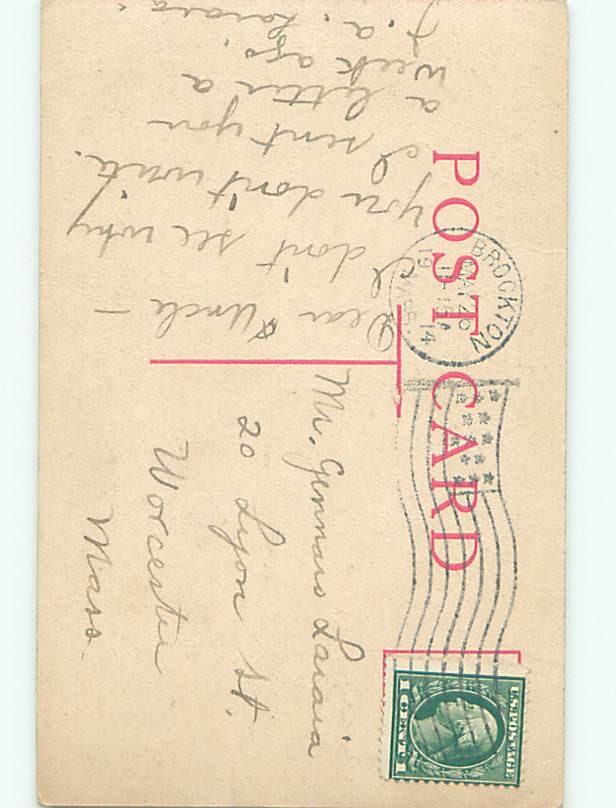 POST CARD
BROCKTON
MASS.
19 14
Dear Uncle —
I don't see why
you don't write.
I sent you
a letter a
week ago.
J. A. Laraia
Mr. Gennaro Laraia
20 Lyon St.
Worcester
Mass.
U.S. POSTAGE
1 CENT 1